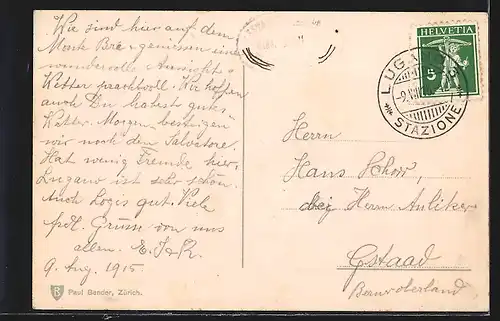 Wir sind hier auf dem
Monte Bre - geniessen eine
wundervolle Aussicht.
Wetter prachtvoll. Wir hoffen
auch Du habest gutes
Wetter. Morgen besteigen
wir noch den Salvatore.
Hat wenig Fremde hier,
Lugano ist sehr schön.
Auch Logis gut. Viele
hzl. Grüsse von uns
allen.
9. Aug. 1915
Paul Bender, Zürich.
HELVETIA
5
LUGANO
STAZIONE
Herrn
Hans Schori,
bei Herrn Anliker
Gstaad
Berner oberland